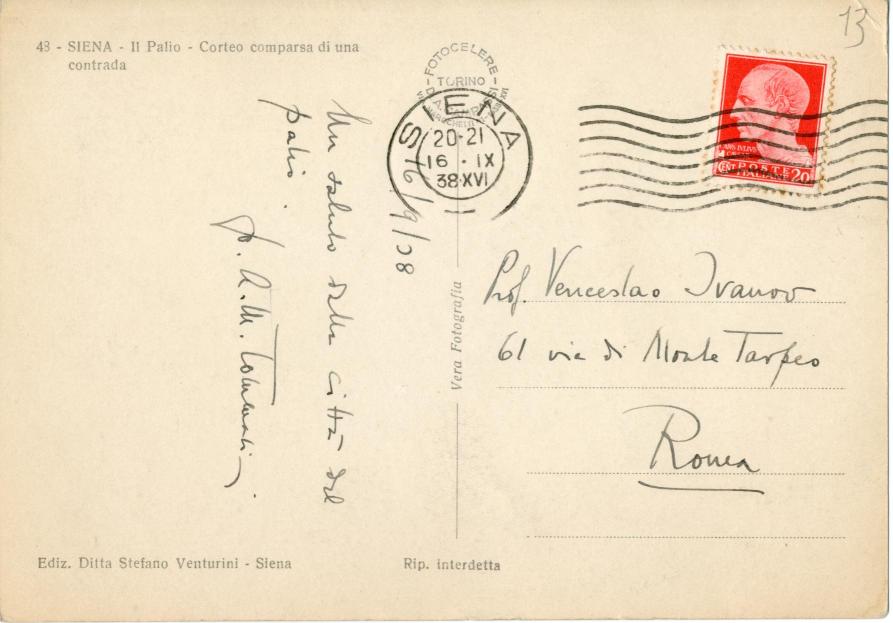 13
43 - SIENA - Il Palio - Corteo comparsa di una
contrada
FOTOCELERE
TORINO
SIENA
20-21
16 · IX
38·XVI
POSTE
ITALIANE
CENT 20
16/9/38
Un saluto dalla città del
palio.
A. M.
Vera Fotografia
Prof. Venceslao Ivanov
61 via di Monte Tarpeo
Roma
Ediz. Ditta Stefano Venturini - Siena
Rip. interdetta